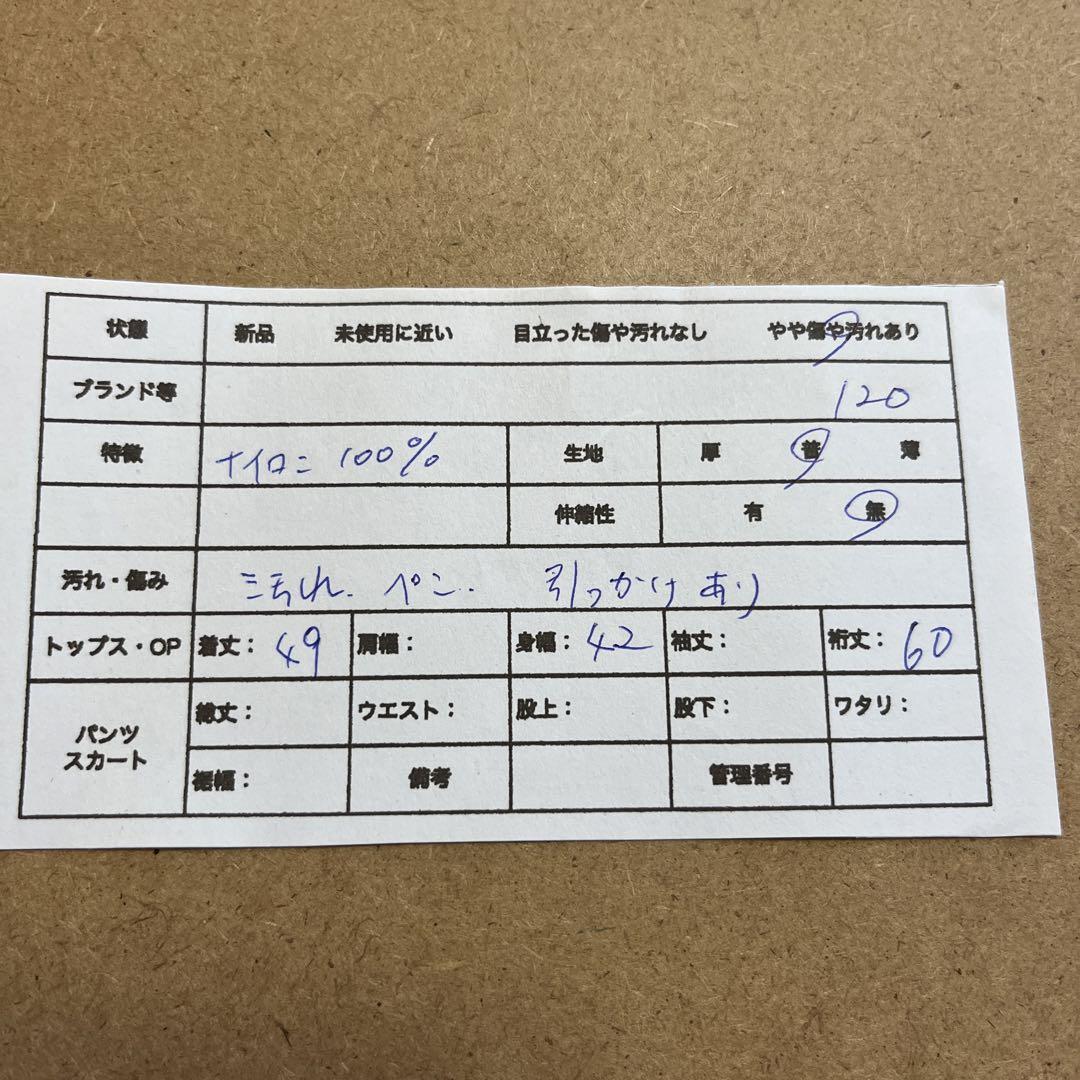 状態 新品 未使用に近い 目立った傷や汚れなし やや傷や汚れあり
ブランド等 120
特徴 ナイロン 100% 生地 厚 普 薄
伸縮性 有 無
汚れ・傷み 汚れ、ペン、 引っかけあり
トップス・OP 着丈: 49 肩幅: 身幅: 42 袖丈: 裄丈: 60
パンツ スカート 総丈: ウエスト: 股上: 股下: ワタリ:
裾幅: 備考 管理番号